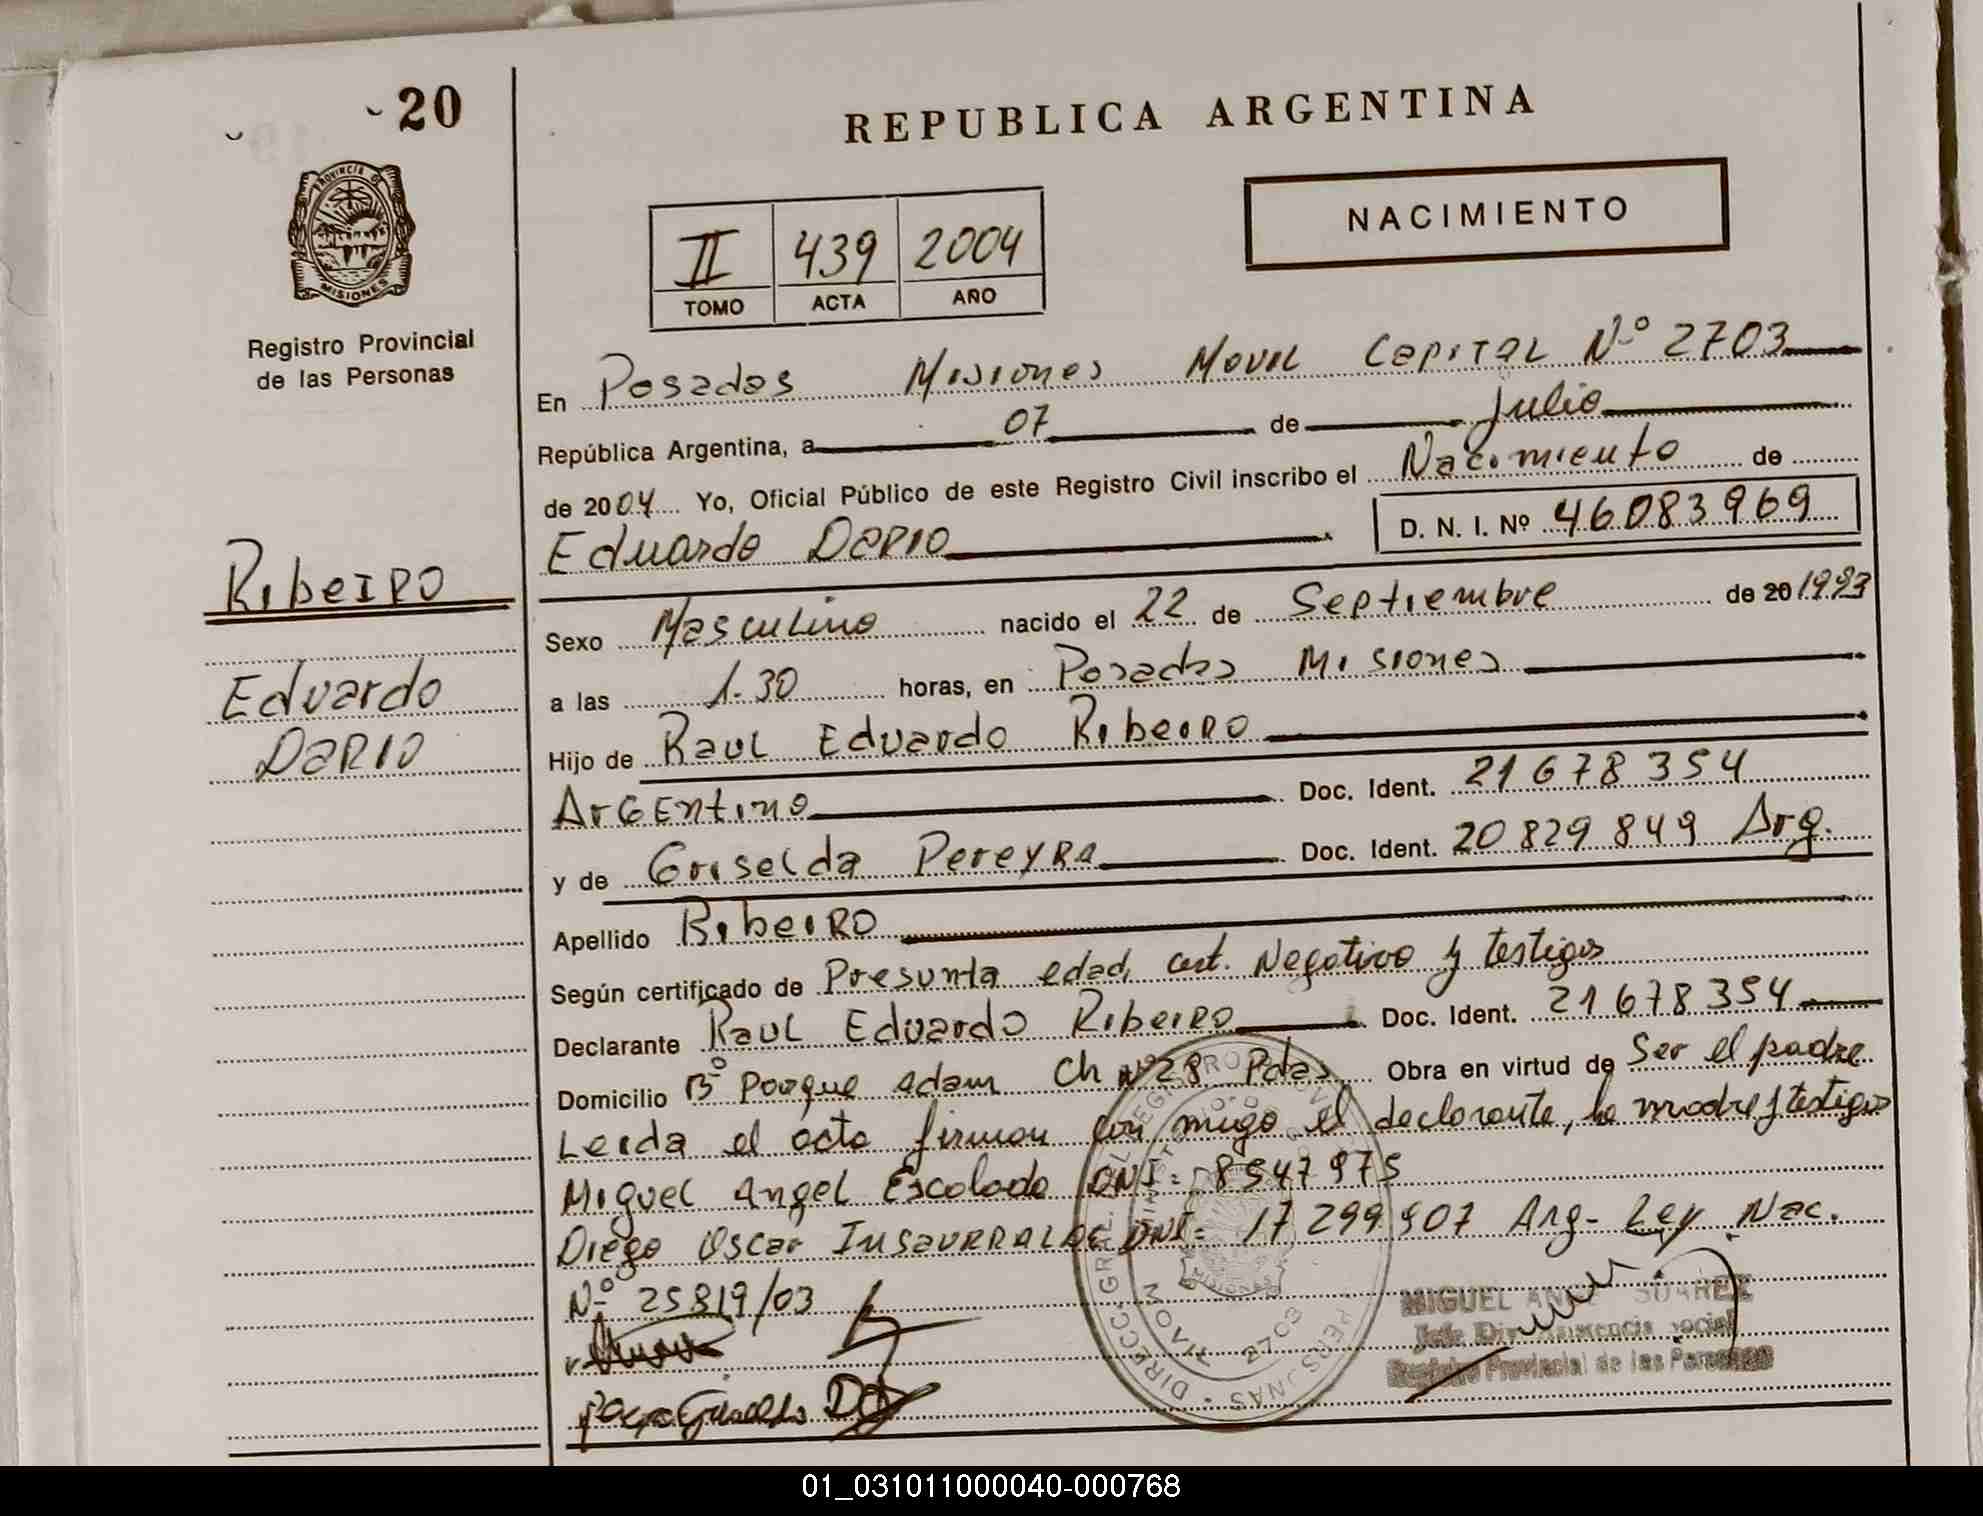 20
REPUBLICA ARGENTINA
PROVINCIA DE
MISIONES
Registro Provincial
de las Personas
NACIMIENTO
II 439 2004
TOMO ACTA AÑO
En Posadas Misiones Movil Capital Nº 2703
República Argentina, a 07 de Julio
de 2004 Yo, Oficial Público de este Registro Civil inscribo el Nacimiento de
Eduardo Dario D. N. I. Nº 46083969
Ribeiro
Eduardo
Dario
Sexo Masculino nacido el 22 de Septiembre de 20 1993
a las 1.30 horas, en Posadas Misiones
Hijo de Raul Eduardo Ribeiro
Argentino Doc. Ident. 21678354
y de Griselda Pereyra Doc. Ident. 20829849 Arg.
Apellido Ribeiro
Según certificado de Presunta edad, cert. Negativo y testigos
Declarante Raul Eduardo Ribeiro Doc. Ident. 21678354
Domicilio Bº Parque Adam Ch Nº 28 Pdas, Obra en virtud de Ser el padre
Leida el acta firman con migo el declarante, la madre y testigos
Miguel Angel Escalada DNI: 8547975
Diego Oscar Insaurralde DNI: 17299907 Arg- Ley Nac.
Nº 25819/03
MIGUEL ANGEL SUAREZ
Jefe Div. Asistencia Social
Registro Provincial de las Personas
2703
01_031011000040-000768